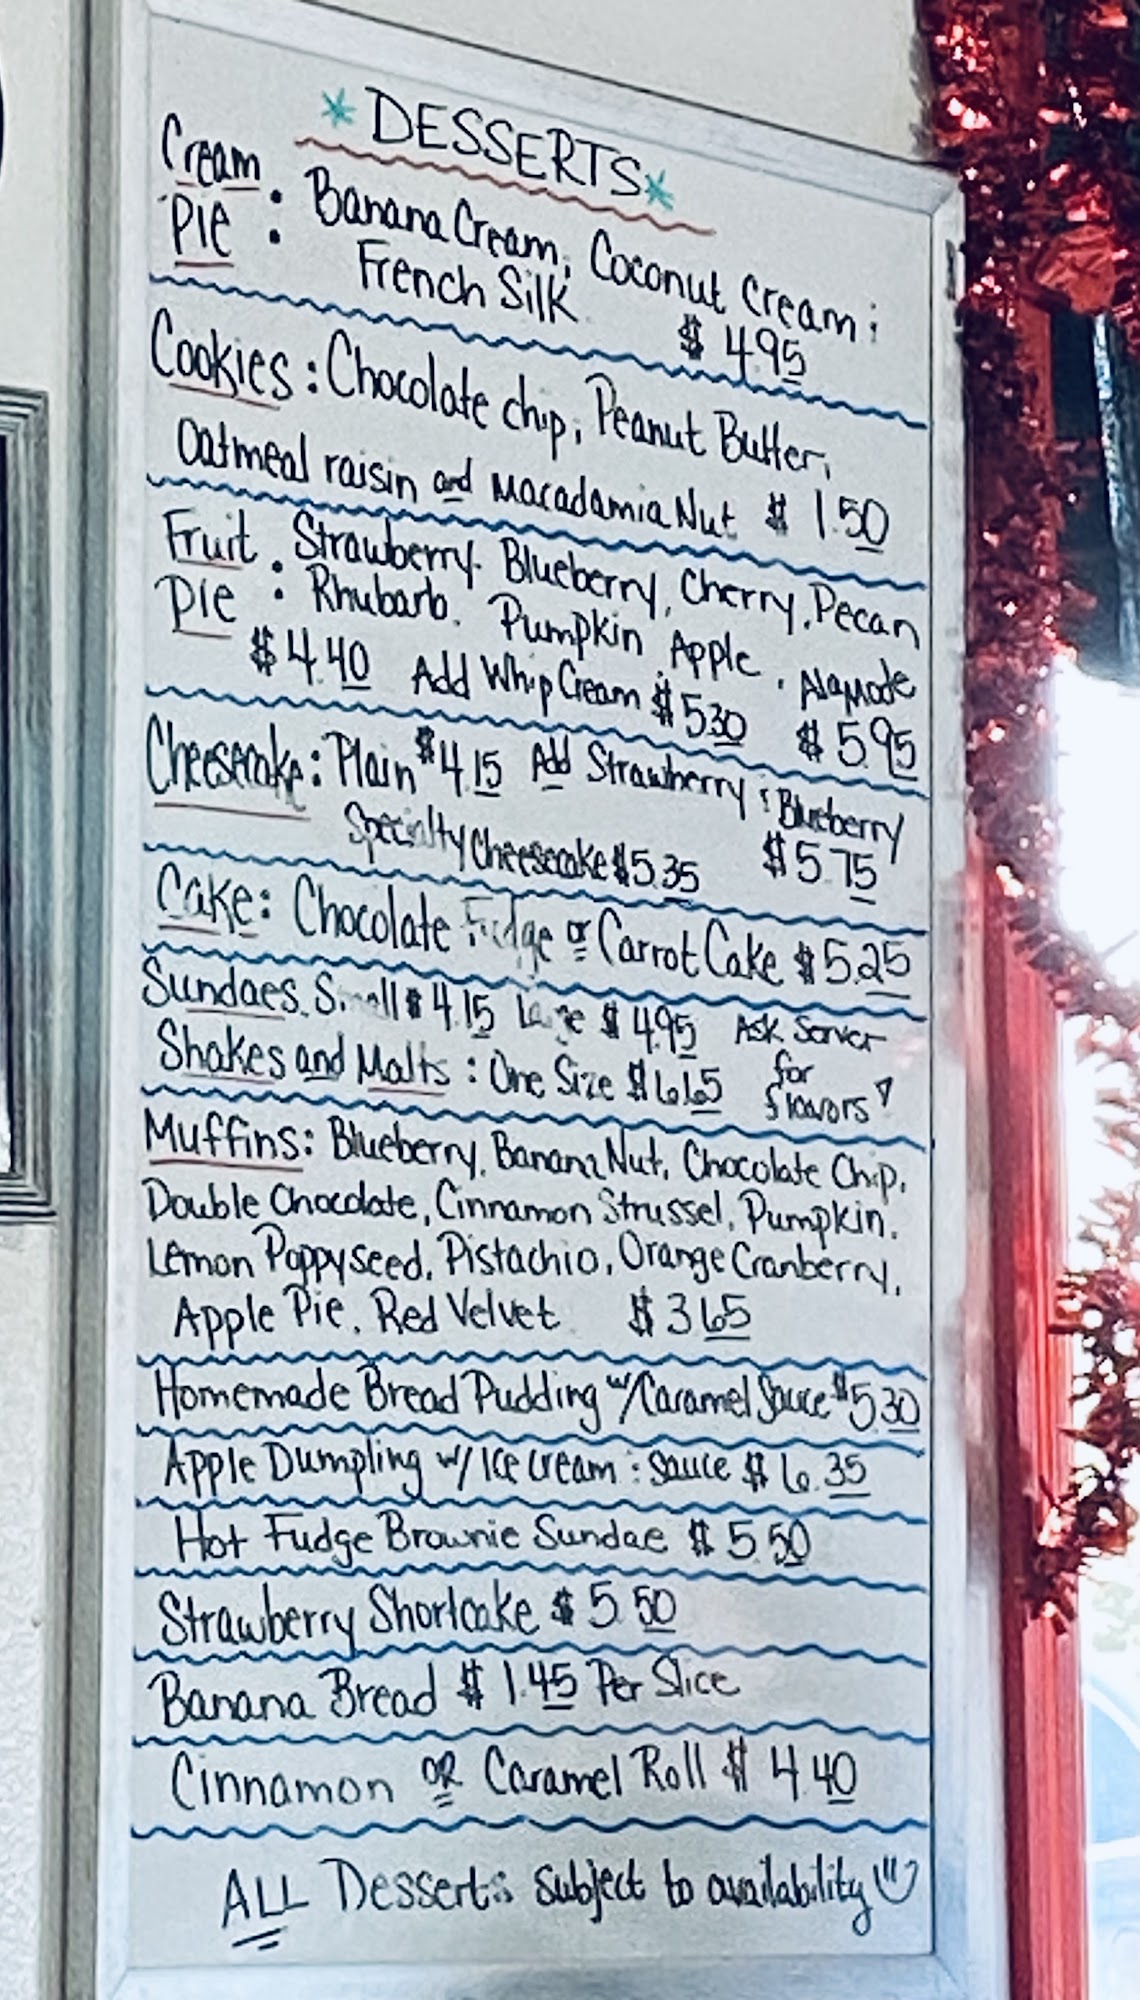 *DESSERTS*
Cream Pie: Banana Cream, Coconut Cream;
French Silk $4.95
Cookies: Chocolate chip, Peanut Butter,
Oatmeal raisin and Macadamia Nut $1.50
Fruit Pie: Strawberry. Blueberry, Cherry, Pecan
Rhubarb. Pumpkin, Apple. Alamode
$4.40 Add Whip Cream $5.30 $5.95
Cheesecake: Plain $4.15 Add Strawberry; Blueberry
Specialty Cheesecake $5.35 $5.75
Cake: Chocolate Fudge or Carrot Cake $5.25
Sundaes. Small $4.15 Large $4.95 Ask Server
Shakes and Malts: One Size $6.65 for
flavors!
Muffins: Blueberry, Banana Nut, Chocolate Chip,
Double Chocolate, Cinnamon Strussel, Pumpkin.
Lemon Poppyseed, Pistachio, Orange Cranberry,
Apple Pie, Red Velvet $3.65
Homemade Bread Pudding w/Caramel Sauce $5.30
Apple Dumpling w/ Ice Cream: Sauce $6.35
Hot Fudge Brownie Sundae $5.50
Strawberry Shortcake $5.50
Banana Bread $1.45 Per Slice
Cinnamon OR Caramel Roll $4.40
ALL Desserts subject to availability